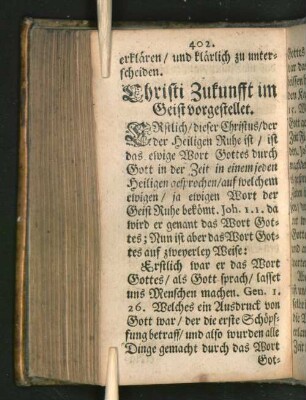 402.
erklären / und klärlich zu unter-
scheiden.
Christi Zukunfft im
Geist vorgestellet.
ERstlich / dieser Christus / der
der Heiligen Ruhe ist / ist
das ewige Wort Gottes durch
Gott in der Zeit in einem jeden
Heiligen gesprochen / auf welchem
ewigen / ja ewigen Wort der
Geist Ruhe bekömt. Joh. 1. 1. da
wird er genant das Wort Got-
tes; Nun ist aber das Wort Got-
tes auf zweyerley Weise:
Erstlich war er das Wort
Gottes / als Gott sprach / lasset
uns Menschen machen. Gen. 1.
26. Welches ein Ausdruck von
Gott war / der die erste Schöpf-
fung betraff / und also wurden alle
Dinge gemacht durch das Wort
Got-